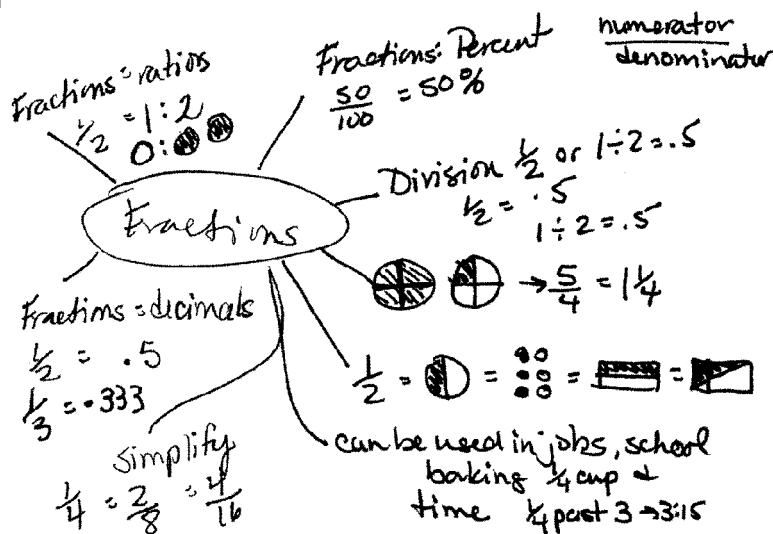 Fractions = ratios
1/2 = 1:2
Fractions: Percent
50/100 = 50%
numerator
denominator
Division 1/2 or 1÷2=.5
1/2 = .5
1÷2=.5
Fractions
→ 5/4 = 1 1/4
Fractions = decimals
1/2 = .5
1/3 = .333
1/2 = = = =
simplify
1/4 = 2/8 = 4/16
can be used in jobs, school
baking 1/4 cup &
time 1/4 past 3 → 3:15